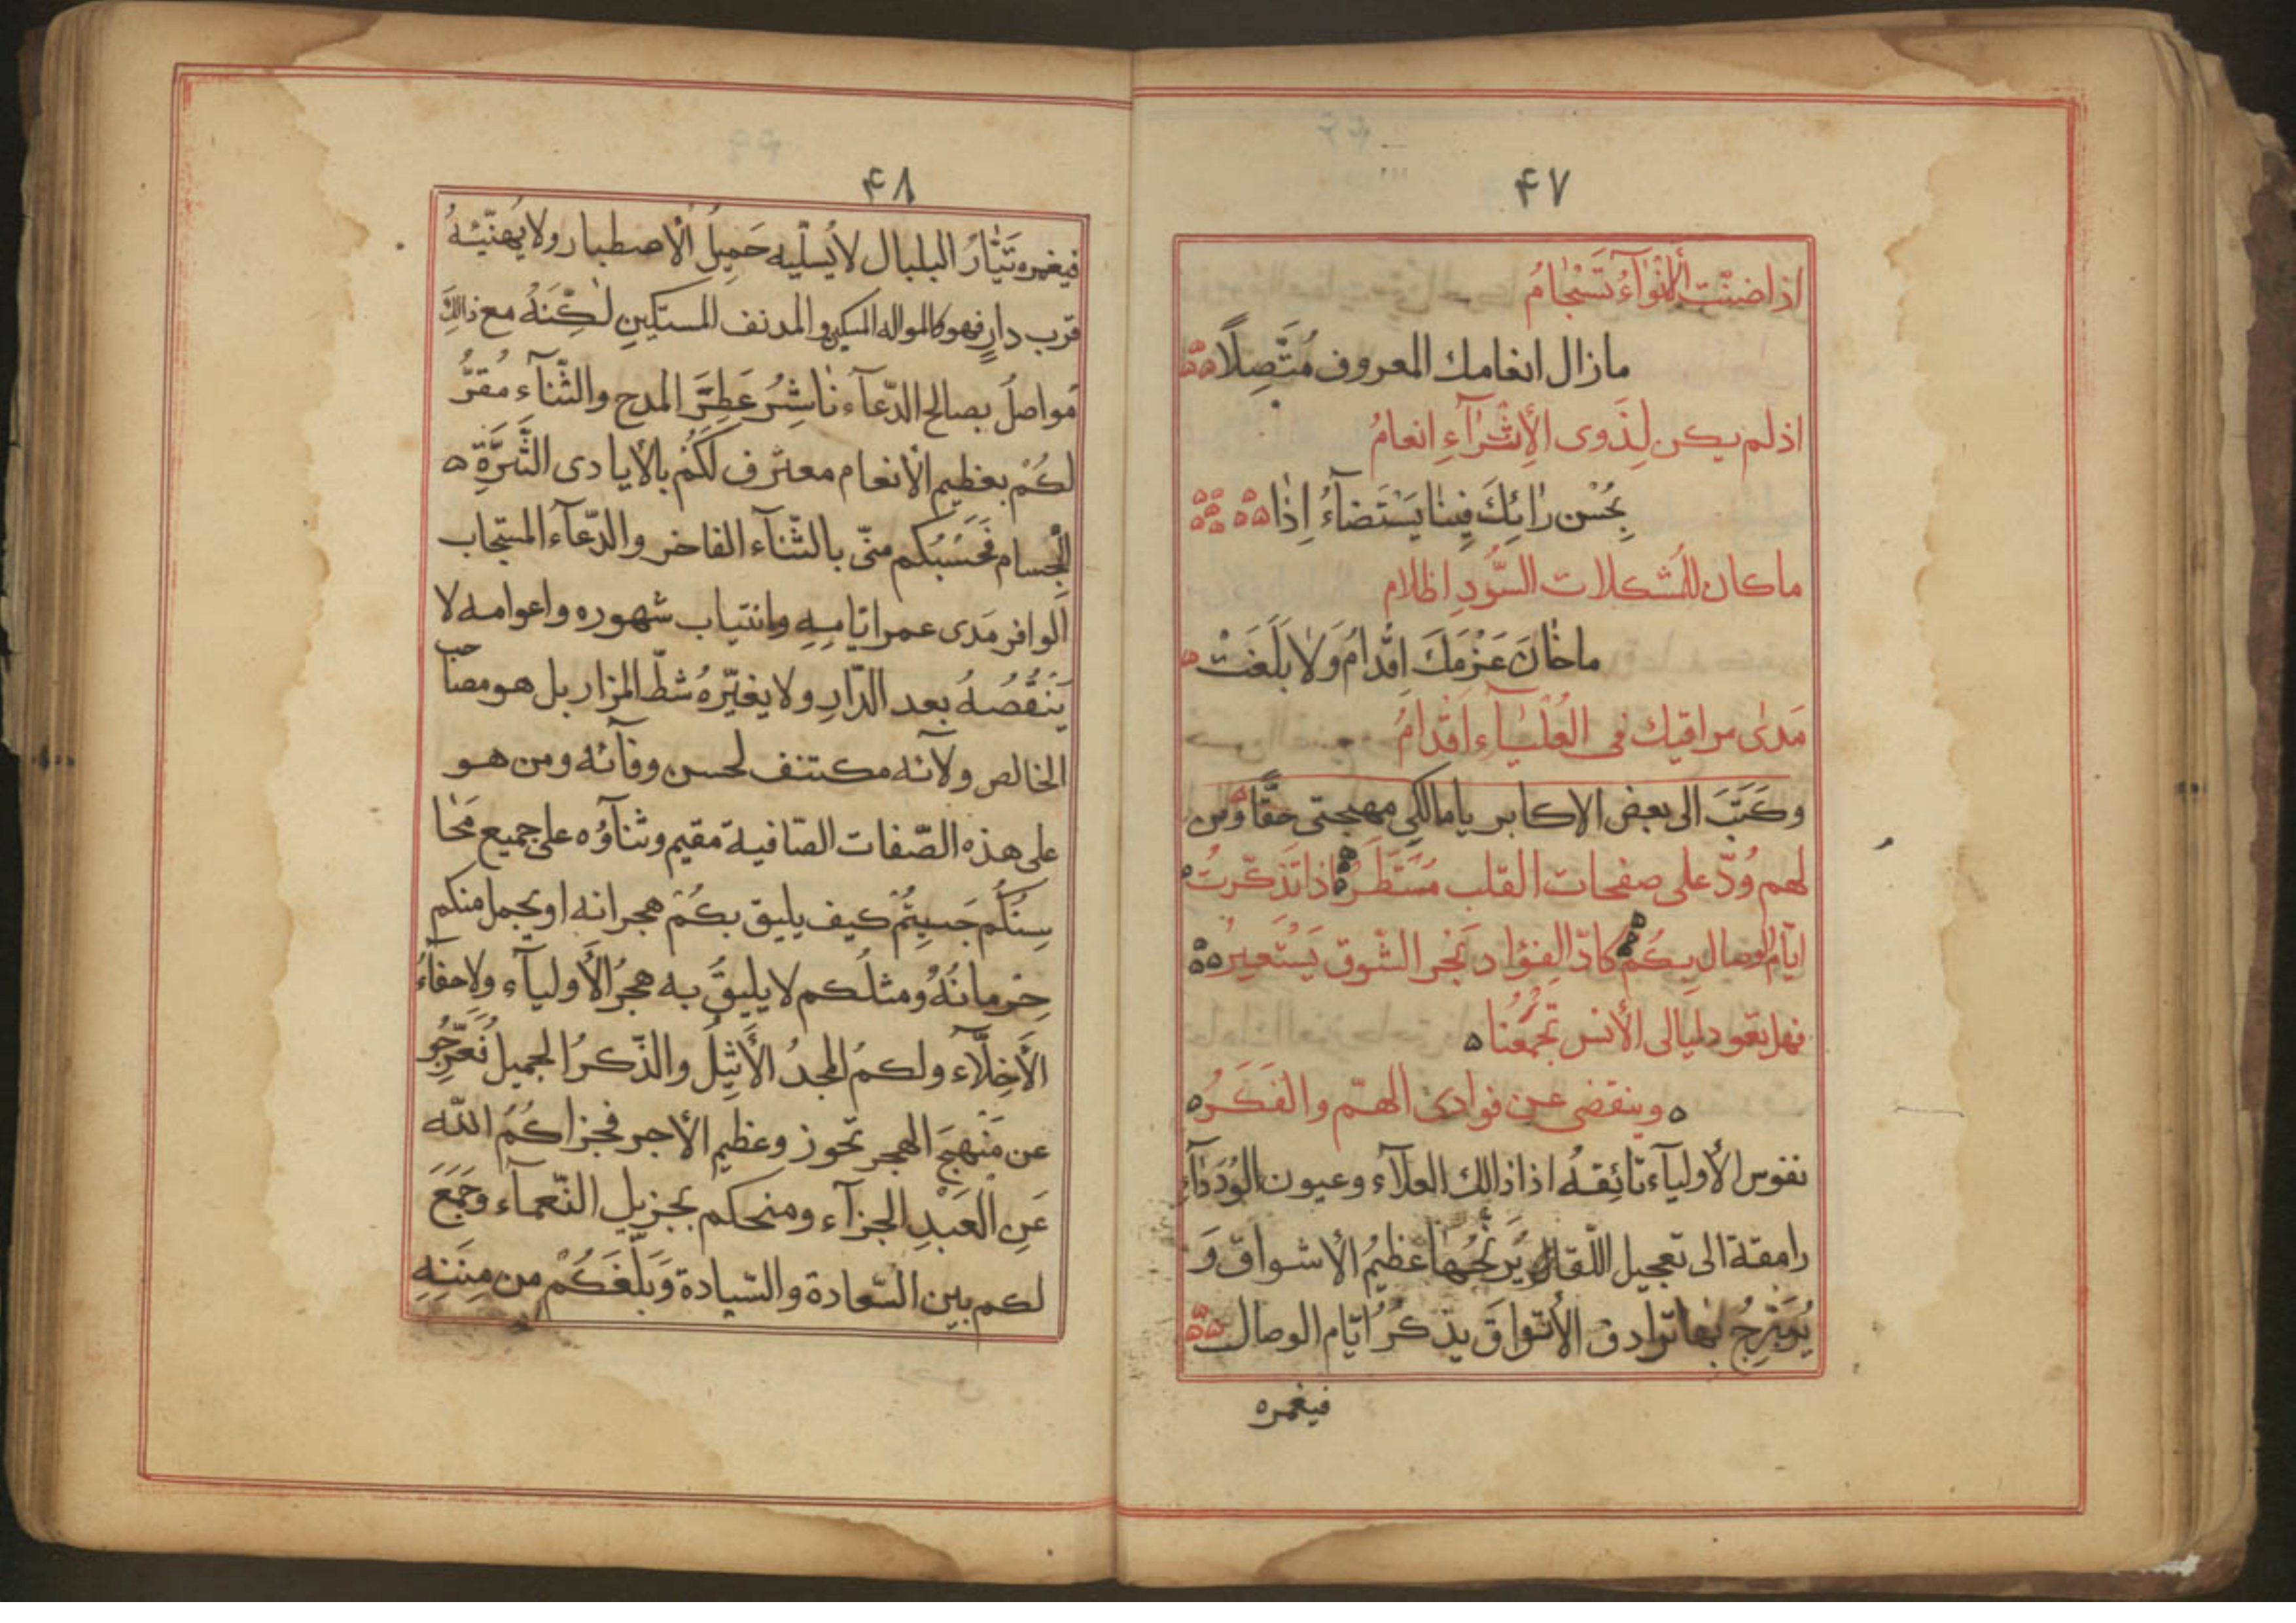 ۴۷
اذا ضنّت الأنوآءُ تَسْجٰامُ
مازال انعامك المعروف مُتَّصِلًا
اذلم يكن لِذَوى الأِثْرٰآءِ انعامُ
بِحُسْن رٰايِكَ فِينٰا يَسْتَضآءُ اِذٰا
ماكان للمُشكلات السّوُدِ اظلام
ماخٰانَ عَزْمَكَ اِقْدٰامُ وَلٰا بَلَغَتْ
مَدىٰ مراقيك فى العُلْيٰآءِ اَقْدٰامُ
وكَتَبَ الى بعض الاكابر يامالكى مهجتى حقًّا ومن
لهم وُدّ على صفحات القلب مُسْتَطَرُ اذا تَذكّرتُ
ايّام الوصال بِكُمْ كادَ الفؤاد بَجْر الشّوق يَسْتَعِرُ
فهل تعود ليالى الأنس تَجْمَعُنا
وينقضى عن فوادى الهمّ والفكَرُ
نفوس الأوليآء تائِقةُ اذا ذالك العلآء وعيون الوُدَدٰآءِ
رامقة الى تعجيل اللّقا يُرَنّحُهٰا عَظيمُ الأشواق وَ
يُبَرِّجُ بهٰا ترادف الأتواقَ بذكرُ ايّام الوصال
فيغمره
۴۸
فيغمره تَيّٰارُ البلبال لايُسَلّيه جَمِيلُ الْاصطبار ولايُهنّيئهُ
قرب دارٍ فهو كالمواله المسكين والمدنف المستكينِ لٰكِنّهُ مع ذالِكَ
مُواصلُ بصالح الدّعآء نٰاشِرُ عَطِرَ المدح والثّنآءِ مُقرُّ
لكُمْ بعظيم الأنعام معترف لَكُمُ بالأيادى الثَّرَّةِ
الْجسام فَحَسْبُكم منّى بالثّنآء الفاخر والدّعآء المستجاب
الوافر مَدى عمر ايّامِهِ وانتياب شهوره واعوامه لا
يَنْقُصُهُ بعد الدّارِ ولا يغيّرهُ شطّ المزار بل هو مصاحب
الخالص ولآئه مكتنف لحسن وفآئه ومن هو
على هذه الصّفات الصّافية مقيم وثنآؤه على جميع مَحٰا
سِنُكُم جَسِيمُ كيف يليق بكُمْ هجرانه او يجمل منكم
حِرمانُهُ ومثلُكم لا يليقُ به هجرُ الأوليآء ولاجفآءُ
الأخِلّآء ولكمُ المجدُ الأثيلُ والذّكرُ الجميل فُعَرّجُو
عن مَنْهجَ الهجر تحوز وعظيم الأجر فجزاكُمُ الله
عَنِ العَبْدِ الجزآء ومنحكم بجزيل النّعمآء وَجَمَعَ
لكم بين السّعادة والسّيادة وَبَلّغَكُمْ من مِنَنِهِ